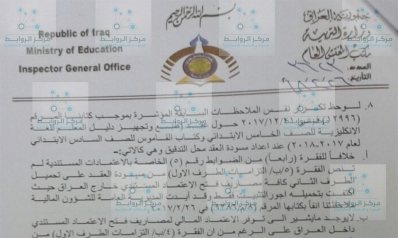 بسم الله الرحمن الرحيم
Republic of Iraq
Ministry of Education
Inspector General Office
جمهورية العراق
وزارة التربية
مكتب المفتش العام
العدد
التاريخ
مركز الروابط
٨. لوحظ تكرار نفس الملاحظات السابقة المؤشرة بموجب كتابنا المرقم
(٢٩٩٦) في ٢٠١٧/١٢/٤ حول عقد طبع وتجهيز دليل المعلم للغة
الانكليزية للصف الخامس الابتدائي وكتاب القاموس للصف السادس الابتدائي
لعام ٢٠١٧-٢٠١٨ عند اعداد مسودة العقد محل التدقيق وهي كالاتي:-
أ. خلافاً للفقرة (رابعا) من الضوابط رقم (٥) الخاصة بالاعتمادات المستندية لم
تنص الفقرة (٥/ب/ التزامات الطرف الاول) من مسودة العقد على تحميل
الطرف الثاني كافة مصاريف فتح الاعتماد المستندي خارج العراق حيث
ب. لايوجد مايشير الى توفر الاعتماد المالي لمصاريف فتح الاعتماد المستندي
داخل العراق على الرغم من ان الفقرة (٥/ب/ التزامات الطرف الاول) من